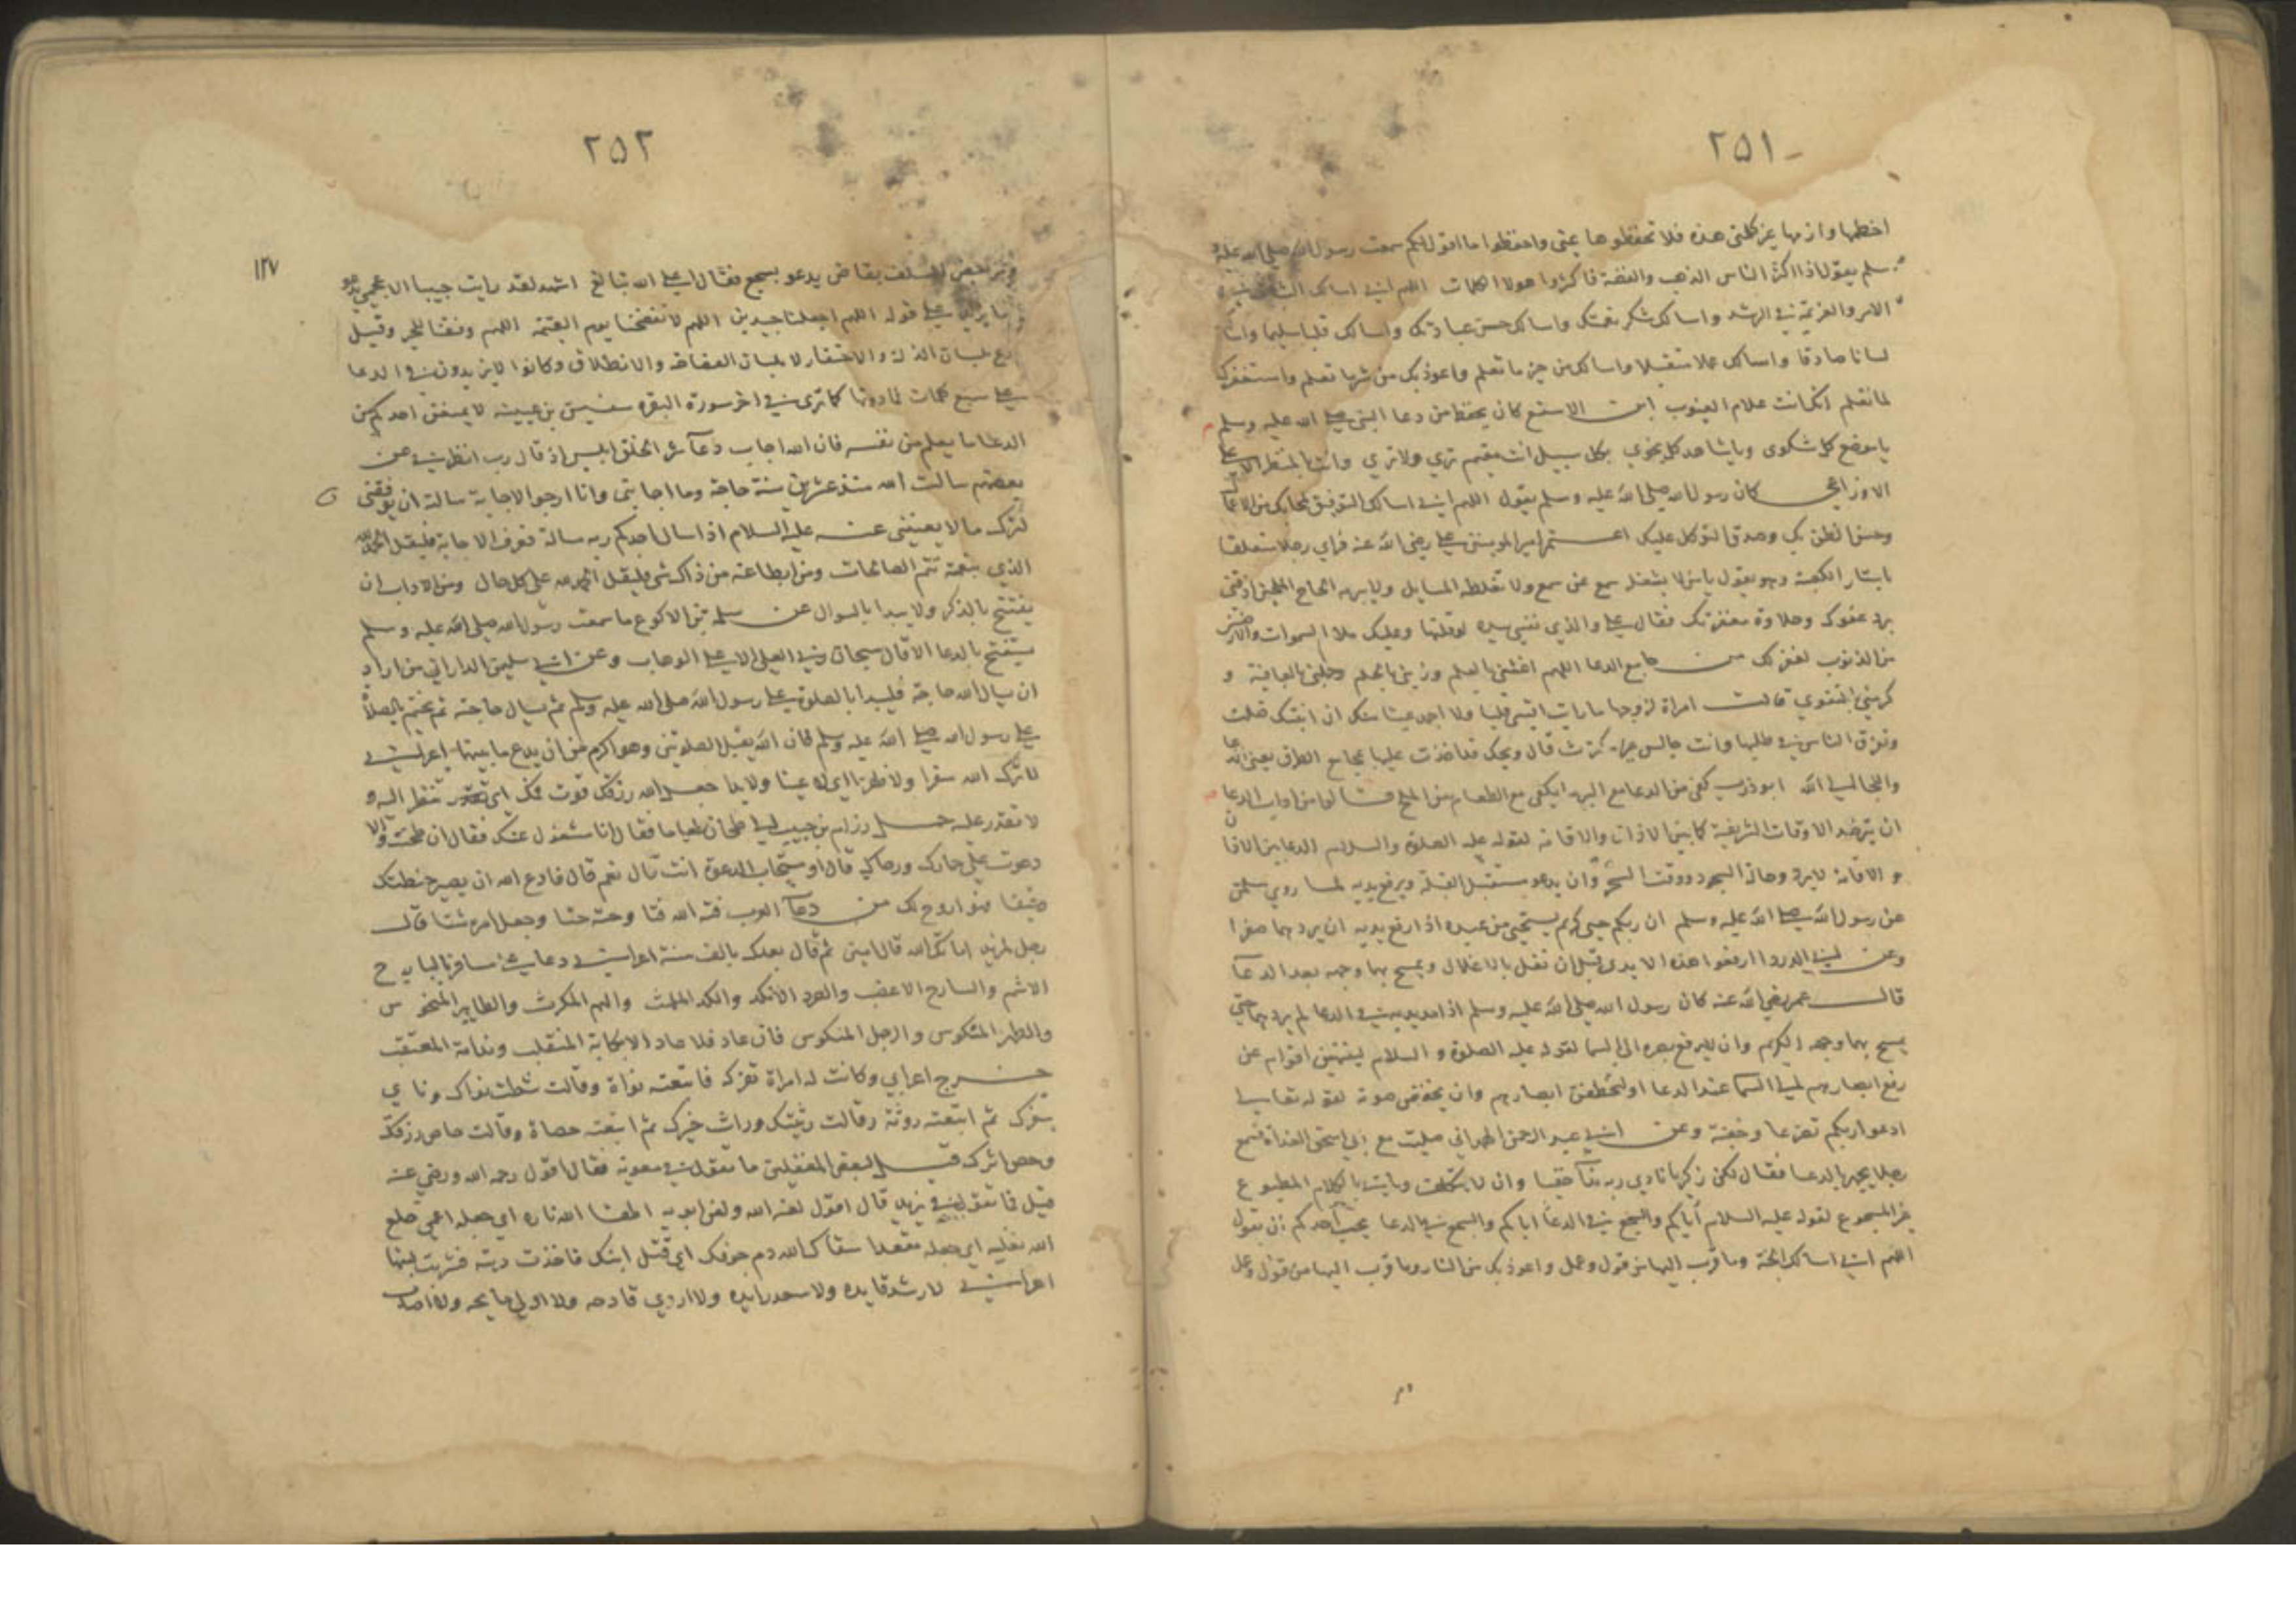 ٢٥١
اخطمها وازمها غير كلمتي هذه فلا تحفظوها عني واحفظوا ما اقول لكم سمعت رسول الله صلى الله عليه
وسلم يقول اذا اكثر الناس الذهب والفضة فاكثروا هولا الكلمات اللهم اني اسالك الثبات في
الامر والعزيمة في الرشد واسالك شكر نعمتك واسالك حسن عبادتك واسالك قلبا سليما واسالك
لسانا صادقا واسالك عملا متقبلا واسالك من خير ما تعلم واعوذ بك من شر ما تعلم واستغفرك
لما تعلم انك انت علام الغيوب ابن الاسقع كان يحفظ من دعا النبي صلى الله عليه وسلم
يا موضع كل شكوى ويا شاهد كل نجوي بكل سبيل انت مقيم تري ولا تري وانت بالمنظر الاعلى
الاوزاعي كان رسول الله صلى الله عليه وسلم يقول اللهم اني اسالك التوفيق لمحابك من الاعمال
وحسن الظن بك وصدق التوكل عليك اعتمر امير المومنين علي رضي الله عنه فراي رجلا متعلقا
باستار الكعبة وهو يقول يا من لا يشغله سمع عن سمع ولا تغلطه المسايل ولا يبرمه الحاح الملحين اذقني
برد عفوك وحلاوة مغفرتك فقال علي والذي نفسي بيده لو قلتها وعليك ملا السموات والارضين
من الذنوب لغفر لك من جامع الدعا اللهم اغنني بالعلم وزيني بالحلم وجملني بالعافية و
كرمني بالتقوي قالت امراة لزوجها ما رايت اقسى قلبا ولا اجمد عينا منك ان ابنتك ضلت
وتفرق الناس في طلبها وانت جالس قال ويحك قد اخذت عليها مجامع الطرق يعني الدعا
واللجا الى الله ابو ذر يكفي من الدعا مع البر ما يكفي الطعام من الملح قالوا من اداب الدعا
ان يترصد الاوقات الشريفة كما بين الاذان والاقامة لقوله عليه الصلوة والسلام الدعا بين الاذان
والاقامة لا يرد وحالة السجود ووقت السحر وان يدعو مستقبل القبلة ويرفع يديه لما روي سلمان
عن رسول الله صلى الله عليه وسلم ان ربكم حيي كريم يستحيي من عبده اذا رفع يديه ان يردهما صفرا
وعن ابي الدردا ارفعوا هذه الايدي قبل ان تغل بالاغلال ويمسح بهما وجهه بعد الدعا
قال عمر رضي الله عنه كان رسول الله صلى الله عليه وسلم اذا مد يديه في الدعا لم يردهما حتى
يمسح بهما وجهه الكريم وان لا يرفع بصره الى السما لقوله عليه الصلوة والسلام لينتهين اقوام عن
رفع ابصارهم الى السما عند الدعا او لتخطفن ابصارهم وان يخفض صوته لقوله تعالى
ادعوا ربكم تضرعا وخفية وعن ابي عبد الرحمن الهمداني صليت مع ابي اسحق الغداة فسمع
رجلا يجهر بالدعا فقال لكن زكريا نادي ربه ندآ خفيا وان لا يتكلف وياتي بالكلام المطبوع
غير المسجوع لقوله عليه السلام اياكم والسجع في الدعا يحسب احدكم ان يقول
اللهم اني اسالك الجنة وما قرب اليها من قول وعمل واعوذ بك من النار وما قرب اليها من قول وعمل
٢٥٢
١٢٧
ومر بعض السلف بقاص يدعو بسجع فقال اعلى الله تبالغ اشهد لقد رايت حبيبا الاعجمي يدعو
ما يزيد على قوله اللهم اجعلنا جيدين اللهم لا تفضحنا يوم القيمة اللهم وفقنا للخير وقيل
ادع بلسان الذلة والافتقار لا بلسان الفصاحة والانطلاق وكانوا لا يزيدون في الدعا
على سبع كلمات فما دونها كما ترى في اخر سورة البقرة سفين بن عيينة لا يمنعن احدكم من
الدعا ما يعلم من نفسه فان الله اجاب دعآ شر الخلق ابليس اذ قال رب انظرني عن
بعضهم سالت الله منذ عشرين سنة حاجة وما اجابني وانا ارجو الاجابة سالته ان يوفقني
لترك ما لا يعنيني عنه عليه السلام اذا سال احدكم ربه مسالة فتعرف الاجابة فليقل الحمد لله
الذي بنعمته تتم الصالحات ومن ابطا عنه من ذلك شي فليقل الحمد لله على كل حال ومن الاداب ان
يفتتح بالذكر ولا يبدا بالسوال عن سلمة بن الاكوع ما سمعت رسول الله صلى الله عليه وسلم
يستفتح بالدعا الا قال سبحان ربي العلي الاعلى الوهاب وعن ابي سليمن الداراني من اراد
ان يسال الله حاجة فليبدا بالصلوة على رسول الله صلى الله عليه وسلم ثم يسال حاجته ثم يختم بالصلاة
على رسول الله صلى الله عليه وسلم فان الله يقبل الصلوتين وهو اكرم من ان يدع ما بينهما اعرابي
لا ترك الله سفرا ولا ظفرا اي عينا ولا يدا جعل الله رزقك قوت فمك اي تنظر اليه و
لا تقدر عليه حمل رزام بن حبيب الى طحان طعاما فقال انا مشغول عنك فقال ان طحنت والا
دعوت على حمارك ورحاك قال او مستجاب الدعوة انت قال نعم قال فادع الله ان يصير حنطتك
دقيقا فهو اروح لك من دعآ العرب فته الله فتا وحته حتا وجعل امره شتا قال
رجل لمزبد اماتك الله قال امين ثم قال بعدك بالف سنة اعرابي دعا على مسافر بالبارح
الاشم والسارح الاعضب والصرد الانكد والكد الملهث والهم المكرث والطاير المنحوس
والظهر المنكوس والرجل المنكوس فان عاد فلا عاد الا بكابة المنقلب وندامة المعتقب
خرج اعرابي وكانت له امراة تفركه فاتبعته نواة وقالت شطت نواك وناي
سفرك ثم اتبعته روثة وقالت رثيتك وراث خبرك ثم اتبعته حصاة وقالت حاص رزقك
وحص اثرك قيل لبعض المغفلين ما تقول في معوية فقال اقول رحمه الله ورضي عنه
قيل فما تقول في يزيد قال اقول لعنه الله ولعن ابويه اطفا الله ناره اي جعله اعمى خلع
الله نعليه اي جعله مقعدا سقاك الله دم جوفك اي قتل ابنك فاخذت ديته فشربت لبنها
اعرابي لا رشد قايده ولا سعد رايده ولا اروي قادحه